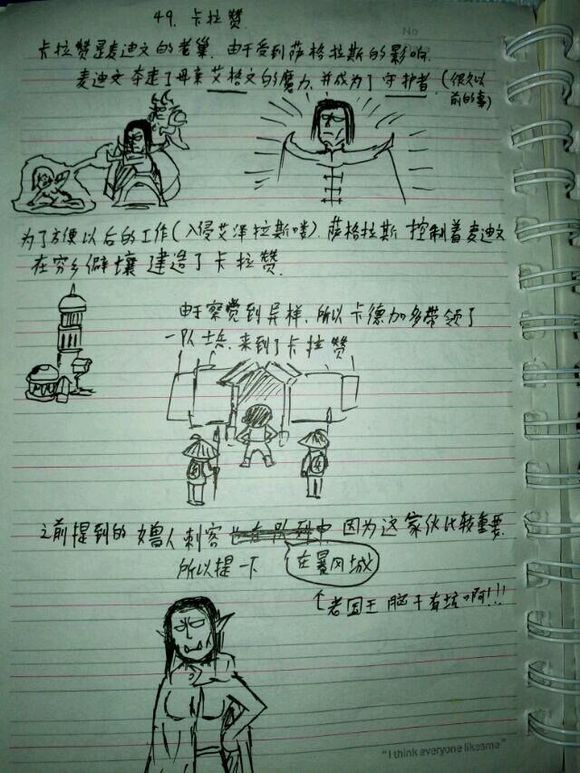 49. 卡拉赞
No
卡拉赞是麦迪文的老巢. 由于受到萨格拉斯的影响.
麦迪文夺走了母亲艾格文的魔力, 并成为了守护者 (很久以
前的事)
为了方便以后的工作(入侵艾泽拉斯喽). 萨格拉斯 控制着麦迪文
在穷乡僻壤 建造了卡拉赞.
由于察觉到异样, 所以卡德加多带领了
一队士兵, 来到了卡拉赞
之前提到的 女兽人刺客 也在队列中, 因为这家伙比较重要.
所以提一下 在暴风城
↑老国王脑子有坑啊!!!
"I think everyone likes me"